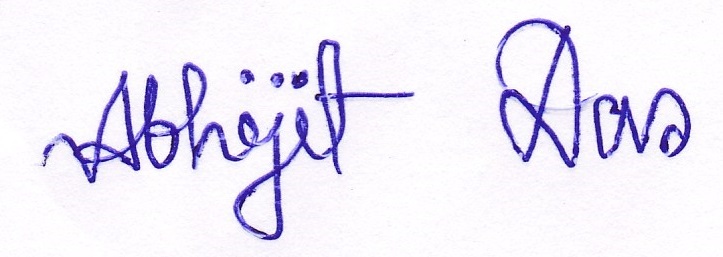 Abhijit Das